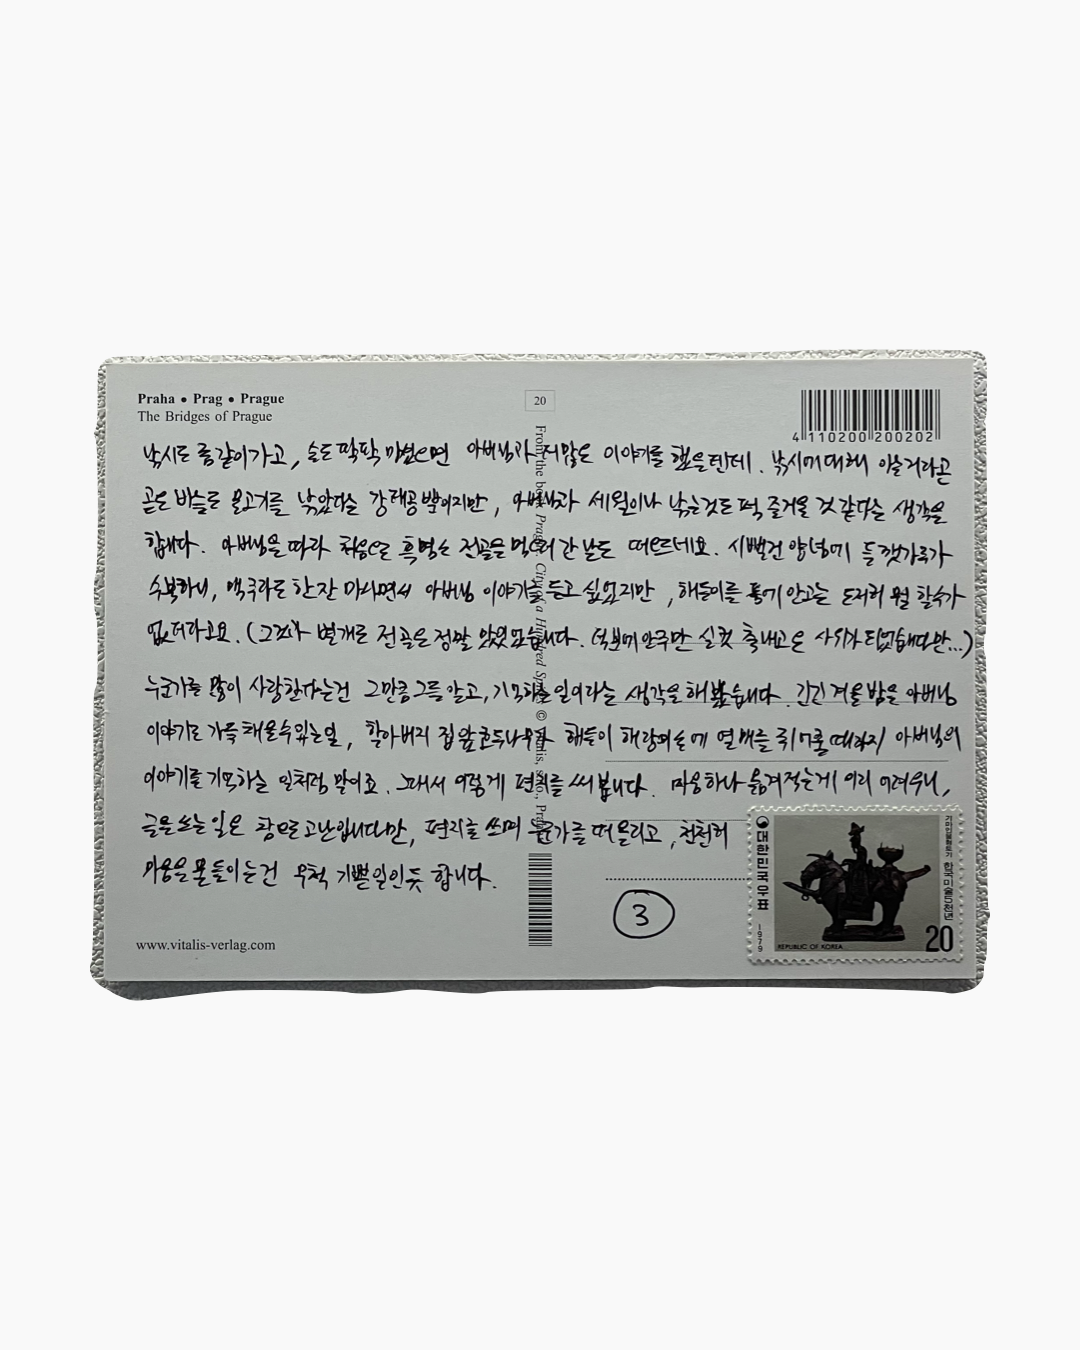 Praha • Prag • Prague
The Bridges of Prague
20
4 110200 200202
낚시도 좀 같이가고, 술도 팍팍 마셨으면 아버님과 더 많은 이야기를 했을텐데. 낚시에 대해 아는거라곤
곧은 바늘로 물고기를 낚았다는 강태공 뿐이지만, 아버님과 세월이나 낚는것도 퍽 즐거울 것 같다는 생각을
합니다. 아버님을 따라 처음으로 흑염소 전골을 먹으러 간 날도 떠오르네요. 시뻘건 양념에 들깻가루가
수북하니, 맥주라도 한잔 마시면서 아버님 이야기를 듣고 싶었지만, 해들이를 품에 안고는 도저히 뭘 할수가
없더라고요. (그것과 별개로 전골은 정말 맛있었습니다. 덕분에 안주만 실컷 축내고 온 사위가 되었습니다만...)
누군가를 많이 사랑한다는건 그만큼 그를 알고, 기억하는 일이라는 생각을 해봤습니다. 긴긴 겨울 밤을 아버님
이야기로 가득 채울수 있는 일, 할아버지 집 앞 호두나무가 해들이 해랑이 손에 열매를 쥐어줄 때까지 아버님의
이야기를 기억하는 일처럼 말이죠. 그래서 이렇게 편지를 써 봅니다. 마음 하나 옮겨적는게 이리 어려우니,
글을 쓰는 일은 참으로 고난입니다만, 편지를 쓰며 누군가를 떠올리고, 천천히
마음을 물들이는건 무척 기쁜일인듯 합니다.
From the book Prague. City of a Hundred Spires © Vitalis, s.r.o., Prag
3
대한민국우표
1979
기마인물형토기 한국미술5천년
REPUBLIC OF KOREA
20
www.vitalis-verlag.com